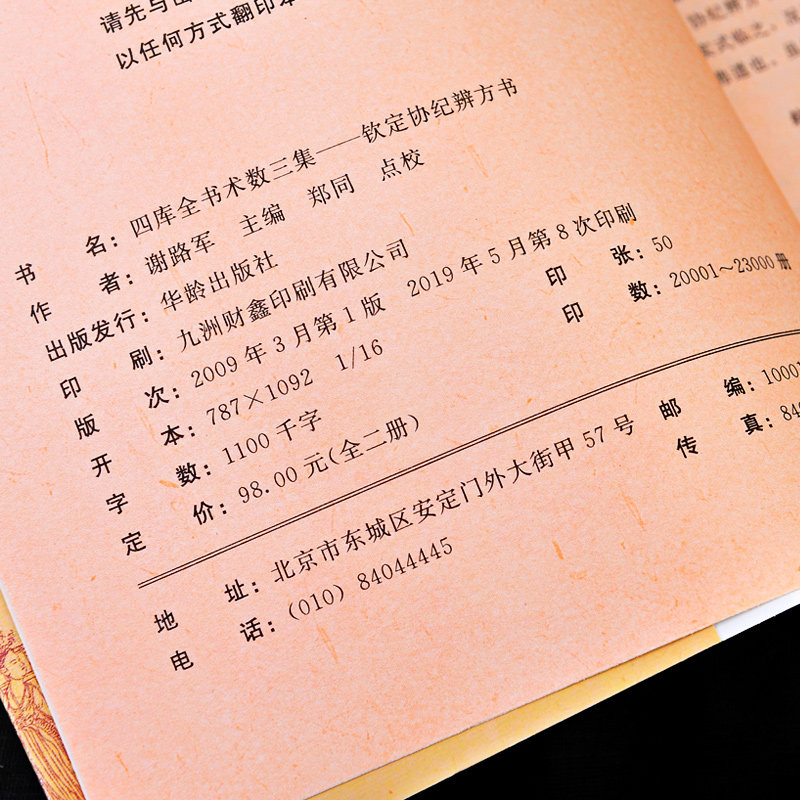 请先与出
以任何方式翻印本
书名：四库全书术数三集——钦定协纪辨方书
作者：谢路军 主编 郑同 点校
出版发行：华龄出版社
印刷：九洲财鑫印刷有限公司
版次：2009年3月第1版 2019年5月第8次印刷
开本：787×1092 1/16 印张：50
字数：1100千字 印数：20001～23000册
定价：98.00元(全二册)
地址：北京市东城区安定门外大街甲57号 邮编：10001
电话：(010) 84044445 传真：84
协纪辨方